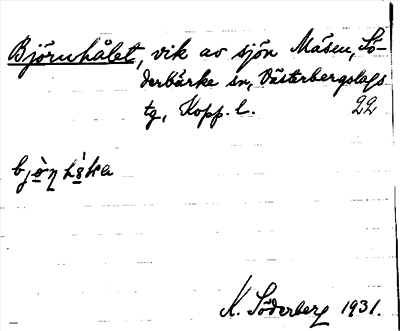 Björnhålet, vik av sjön Måsen, Sö-
derbärke sn, Västerbergslags
tg, Kopp. l. 22
K. Söderberg 1931.